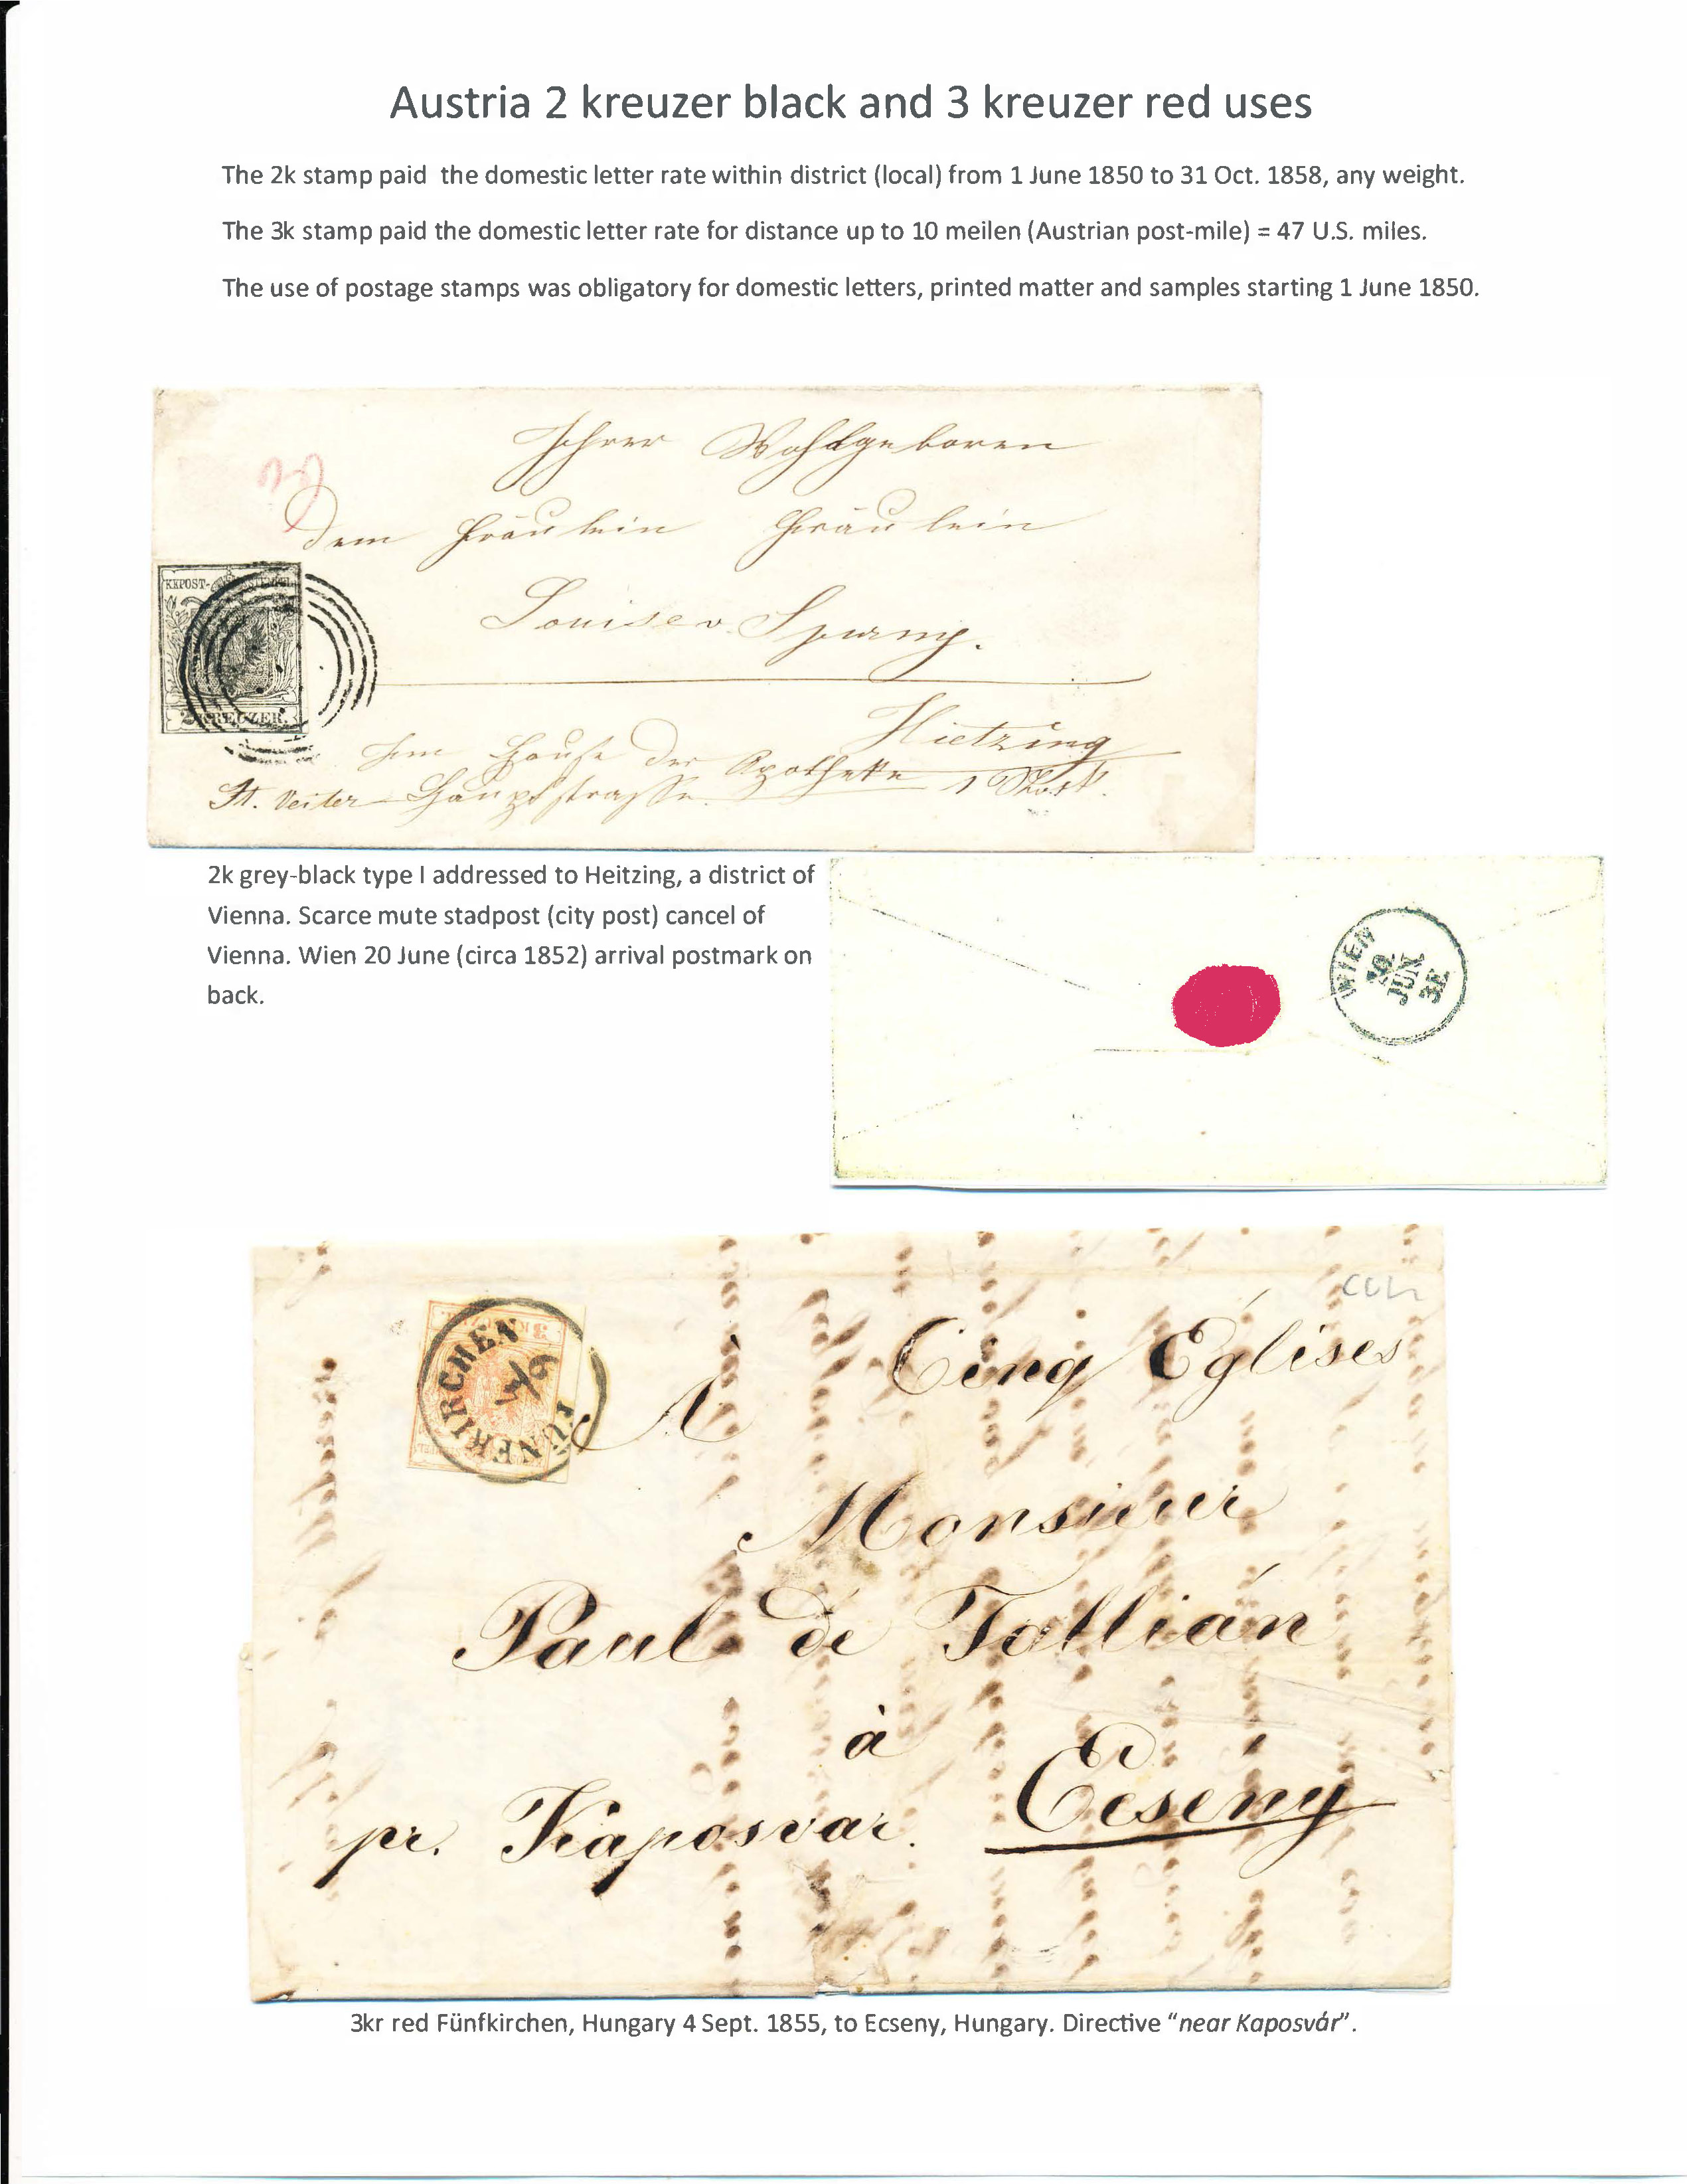 Austria 2 kreuzer black and 3 kreuzer red uses
The 2k stamp paid the domestic letter rate within district (local) from 1 June 1850 to 31 Oct. 1858, any weight.
The 3k stamp paid the domestic letter rate for distance up to 10 meilen (Austrian post-mile) = 47 U.S. miles.
The use of postage stamps was obligatory for domestic letters, printed matter and samples starting 1 June 1850.
Ihrer Wohlgeboren
dem Fräulein Fräulein
Louise v. Spurny.
KKPOST-
2 KREUZER.
Hietzing
Im Hause der Apotheke 1 Stock.
St. Veiter Hauptstrasse
2k grey-black type I addressed to Heitzing, a district of
Vienna. Scarce mute stadpost (city post) cancel of
Vienna. Wien 20 June (circa 1852) arrival postmark on
back.
WIEN
20
JUN
3E
Cinq Églises
FÜNFKIRCHEN
4/9
A
Monsieur
Paul de Tallián
à
pr. Kaposvar. Ecseny
3kr red Fünfkirchen, Hungary 4 Sept. 1855, to Ecseny, Hungary. Directive "near Kaposvár".